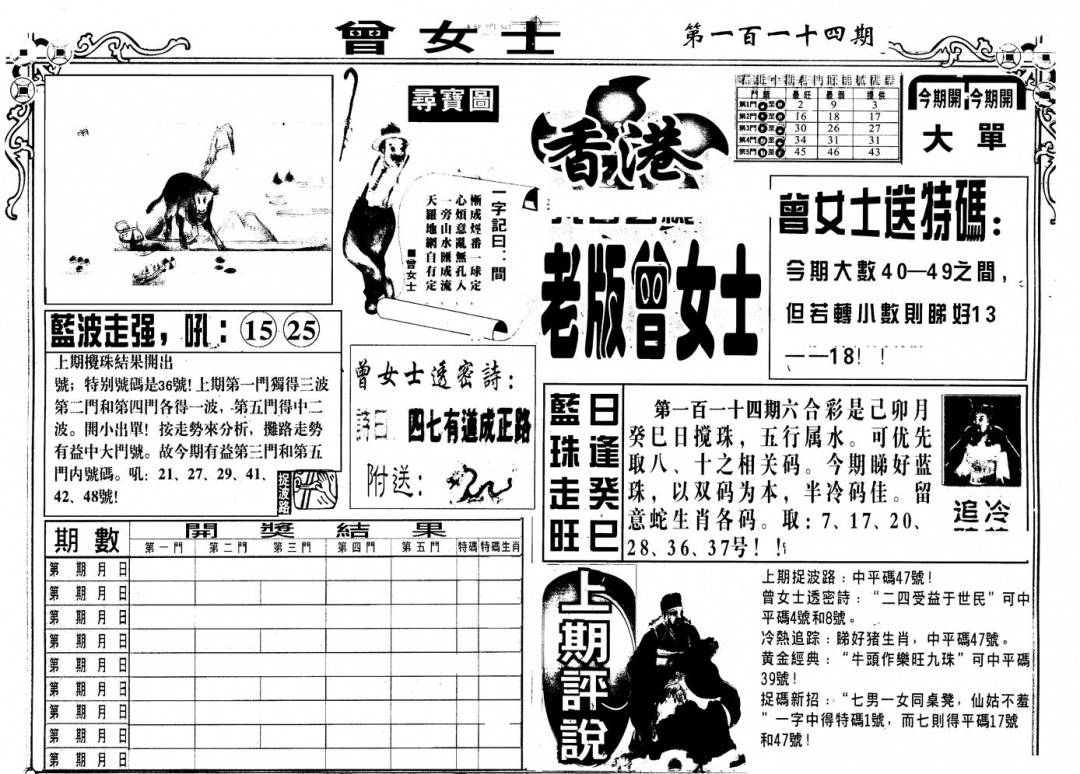 曾女士
第一百一十四期
尋寶圖
一字記曰：間
慚成煙番一球定
心煩意亂無孔入
一旁山水匯成流
天羅地網自有定
曾女士
香港
老版曾女士
門類 最旺 最弱 提供
第1門 2 9 3
第2門 16 18 17
第3門 30 26 27
第4門 34 31 31
第5門 45 46 43
今期開 今期開
大 單
曾女士送特碼：
今期大數40—49之間，
但若轉小數則睇好13
——18！！
藍波走强，吼：15 25
上期攪珠結果開出
號；特别號碼是36號! 上期第一門獨得三波
第二門和第四門各得一波，第五門得中二
波。開小出單！按走勢來分析，攤路走勢
有益中大門號。故今期有益第三門和第五
門内號碼。吼：21、27、29、41、
42、48號!
捉波路
曾女士透密詩：
詩曰：四七有道成正路
附送：
藍珠走旺
日逢癸巳
第一百一十四期六合彩是己卯月
癸巳日搅珠，五行属水。可优先
取八、十之相关码。今期睇好蓝
珠，以双码为本，半冷码佳。留
意蛇生肖各码。取：7、17、20、
28、36、37号！！
追冷
期數 開獎結果
第一門 第二門 第三門 第四門 第五門 特碼 特碼生肖
第 期 月 日
第 期 月 日
第 期 月 日
第 期 月 日
第 期 月 日
第 期 月 日
第 期 月 日
第 期 月 日
第 期 月 日
上期評説
上期捉波路：中平碼47號！
曾女士透密詩：“二四受益于世民”可中
平碼4號和8號。
冷熱追踪：睇好猪生肖，中平碼47號。
黄金經典：“牛頭作樂旺九珠”可中平碼
39號！
捉碼新招：“七男一女同桌凳，仙姑不羞
”一字中得特碼1號，而七則得平碼17號
和47號！